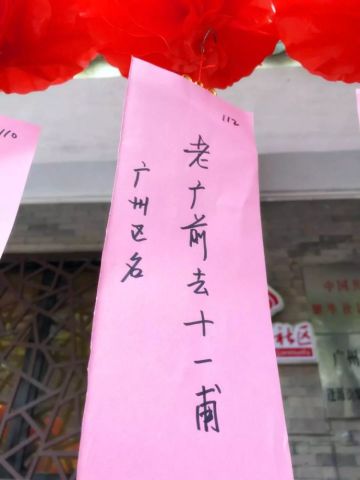 110
112
老广前去十一甫
广州区名
中国共
社区
Community
广州